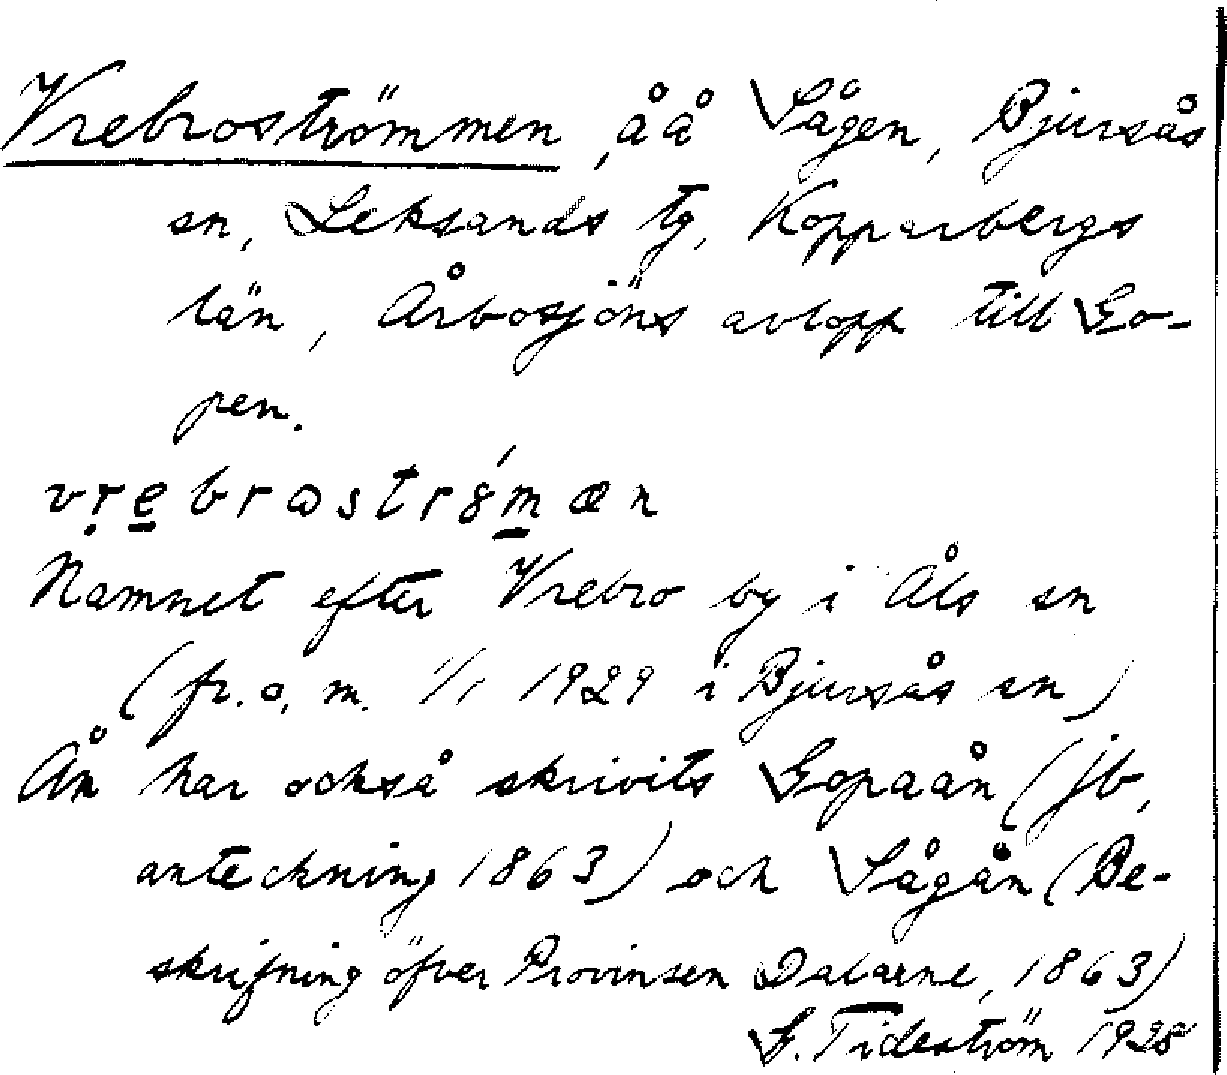 Vrebroströmmen, å å Sågen, Bjursås
sn, Leksands tg, Kopparbergs
län, Årbosjöns avlopp till Go-
pen.
vṛe̲brɷstrǿm̲æn
Namnet efter Vrebro by i Åls sn
(fr.o.m. 1/1 1929 i Bjursås sn)
Ån har också skrivits Gopaån (jb,
anteckning 1863) och Sågån (Be-
skrifning öfver Provinsen Dalarne, 1863)
G. Tideström 1928